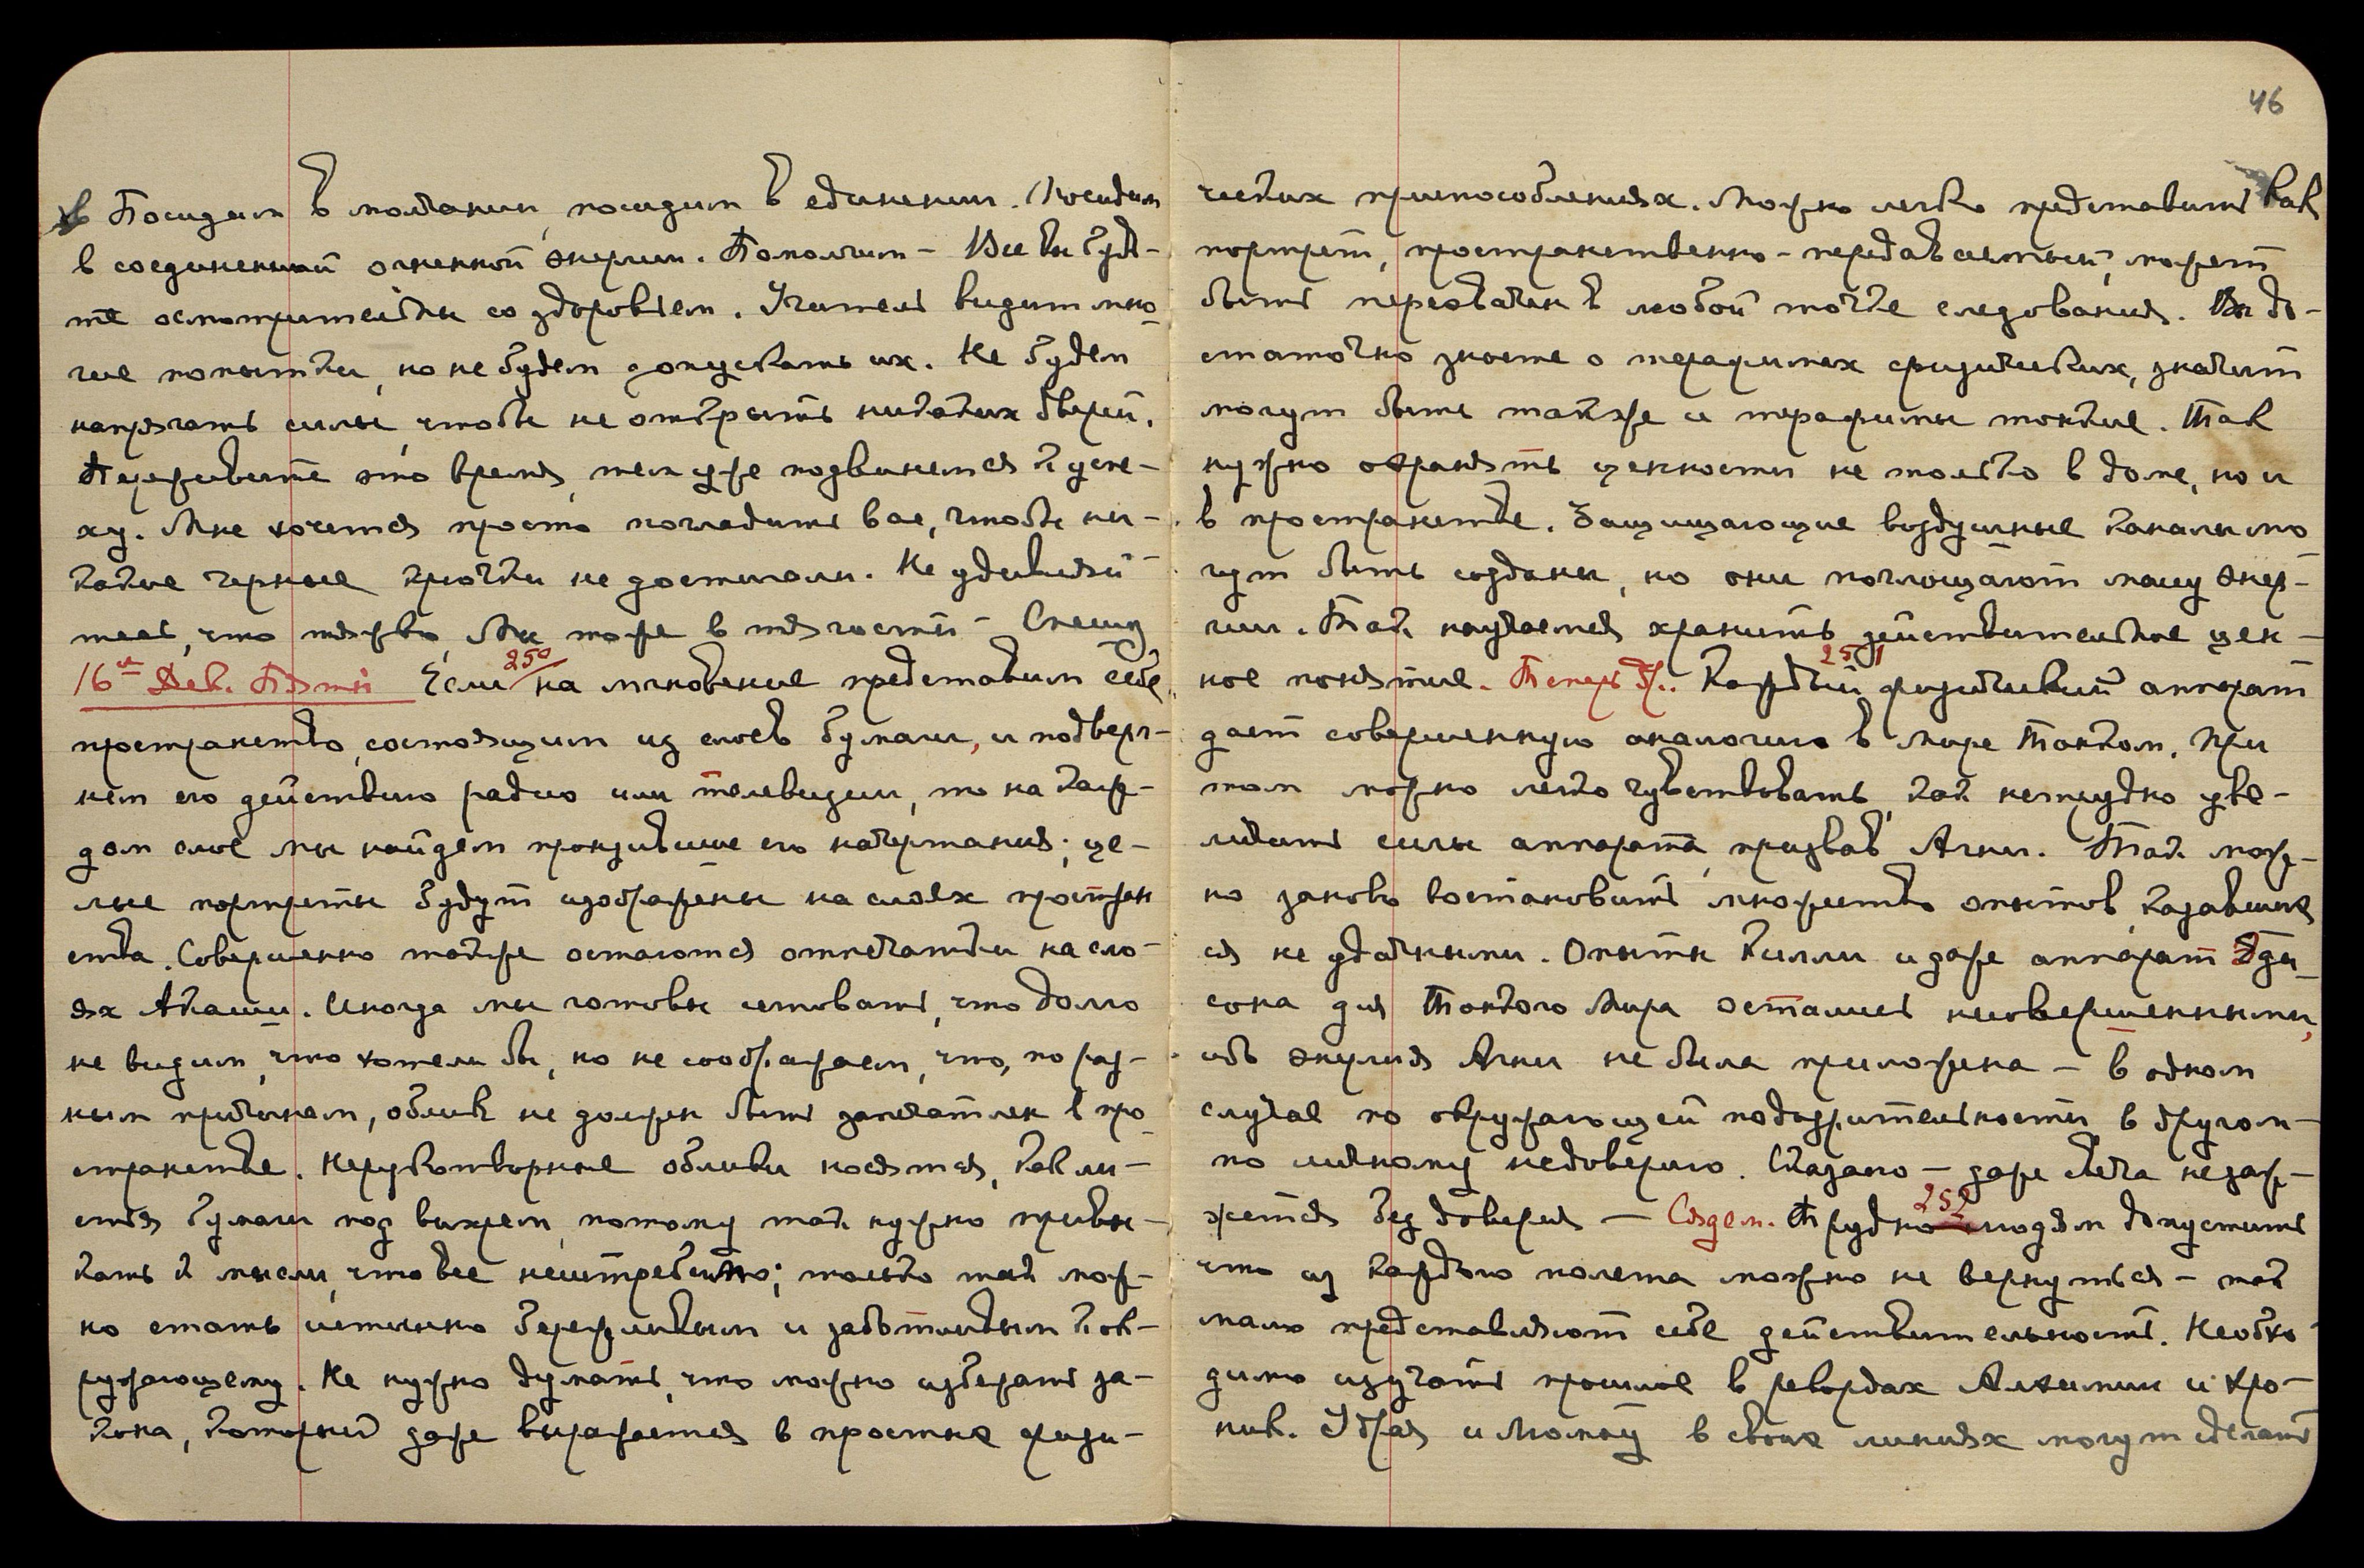 46
в Посидим в молчании, посидим в единении. Посидим
в соединенной огненной энергии. Помолчим – Все вы будь-
те осмотрительны со здоровьем. Учитель видит мно-
гие попытки, но не будем допускать их. Не будем
напрягать силы, чтобы не открыть никаких дверей.
Переживите это время, тем уже подвинетесь к успе-
ху. Мне хочется просто погладить вас, чтобы ни-
какие черные крючки не достигали. Не удивляй-
тесь, что тяжко, Мы тоже в тягости – Спешу
16го Дек. Пятн 250 Если на мгновение представим себе
пространство, состоящим из слоев бумаги, и подверг-
нем его действию радио или телевизии, то на каж-
дом слое мы найдем пронзившие его начертания; це-
лые портреты будут изображены на слоях простран
ства. Совершенно также остаются отпечатки на сло-
ях Акаши. Иногда мы готовы сетовать, что долго
не видим, что хотели бы, но не соображаем, что, по раз-
ным причинам, облик не должен быть запечатлен в про
странстве. Нерукотворные облики носятся, как ли-
стья бумаги под вихрем, потому так нужно привы-
кать к мысли, что все неистребимо; только так мож-
но стать истинно бережливым и заботливым к ок-
ружающему. Не нужно думать, что можно избегать за-
кона, который даже выражается в простых физи-
ческих приспособлениях. Можно легко представить как
портрет, пространственно-передаваемый, может
быть перехвачен в любой точке следования. Вы до-
статочно знаете о терафимах физических, значит
могут быть также и терафимы тонкие. Так
нужно охранять ценности не только в доме, но и
в пространстве. Защищающие воздушные каналы мо
гут быть созданы, но они поглощают массу энер-
гии. Так. научаемся хранить действительное цен-
ное понятие. Теперь др. 251 Каждый физический аппарат
дает совершенную аналогию в Мире Тонком. При
том можно легко чувствовать, как нетрудно уве-
личить силы аппарата, призвав Агни. Так. мож-
но заново востановить множество опытов, казавших
ся не удачными. Опыты Килли и даже аппарат Эди-
сона для Тонкого Мира остались несовершенными,
ибо энергия Агни не была приложена – в одном
случае по окружающей подозрительности в другом –
по личному недоверию. Сказано – даже свеча не заж-
жется без доверия – Сядем. 252 Трудно людям допустить
что из каждого полета можно не вернуться – так
мало представляют себе действительность. Необхо
димо изучать прошлое в рекордах Алхимии и хро-
ник. Убрая и в своих линиях могут сделать